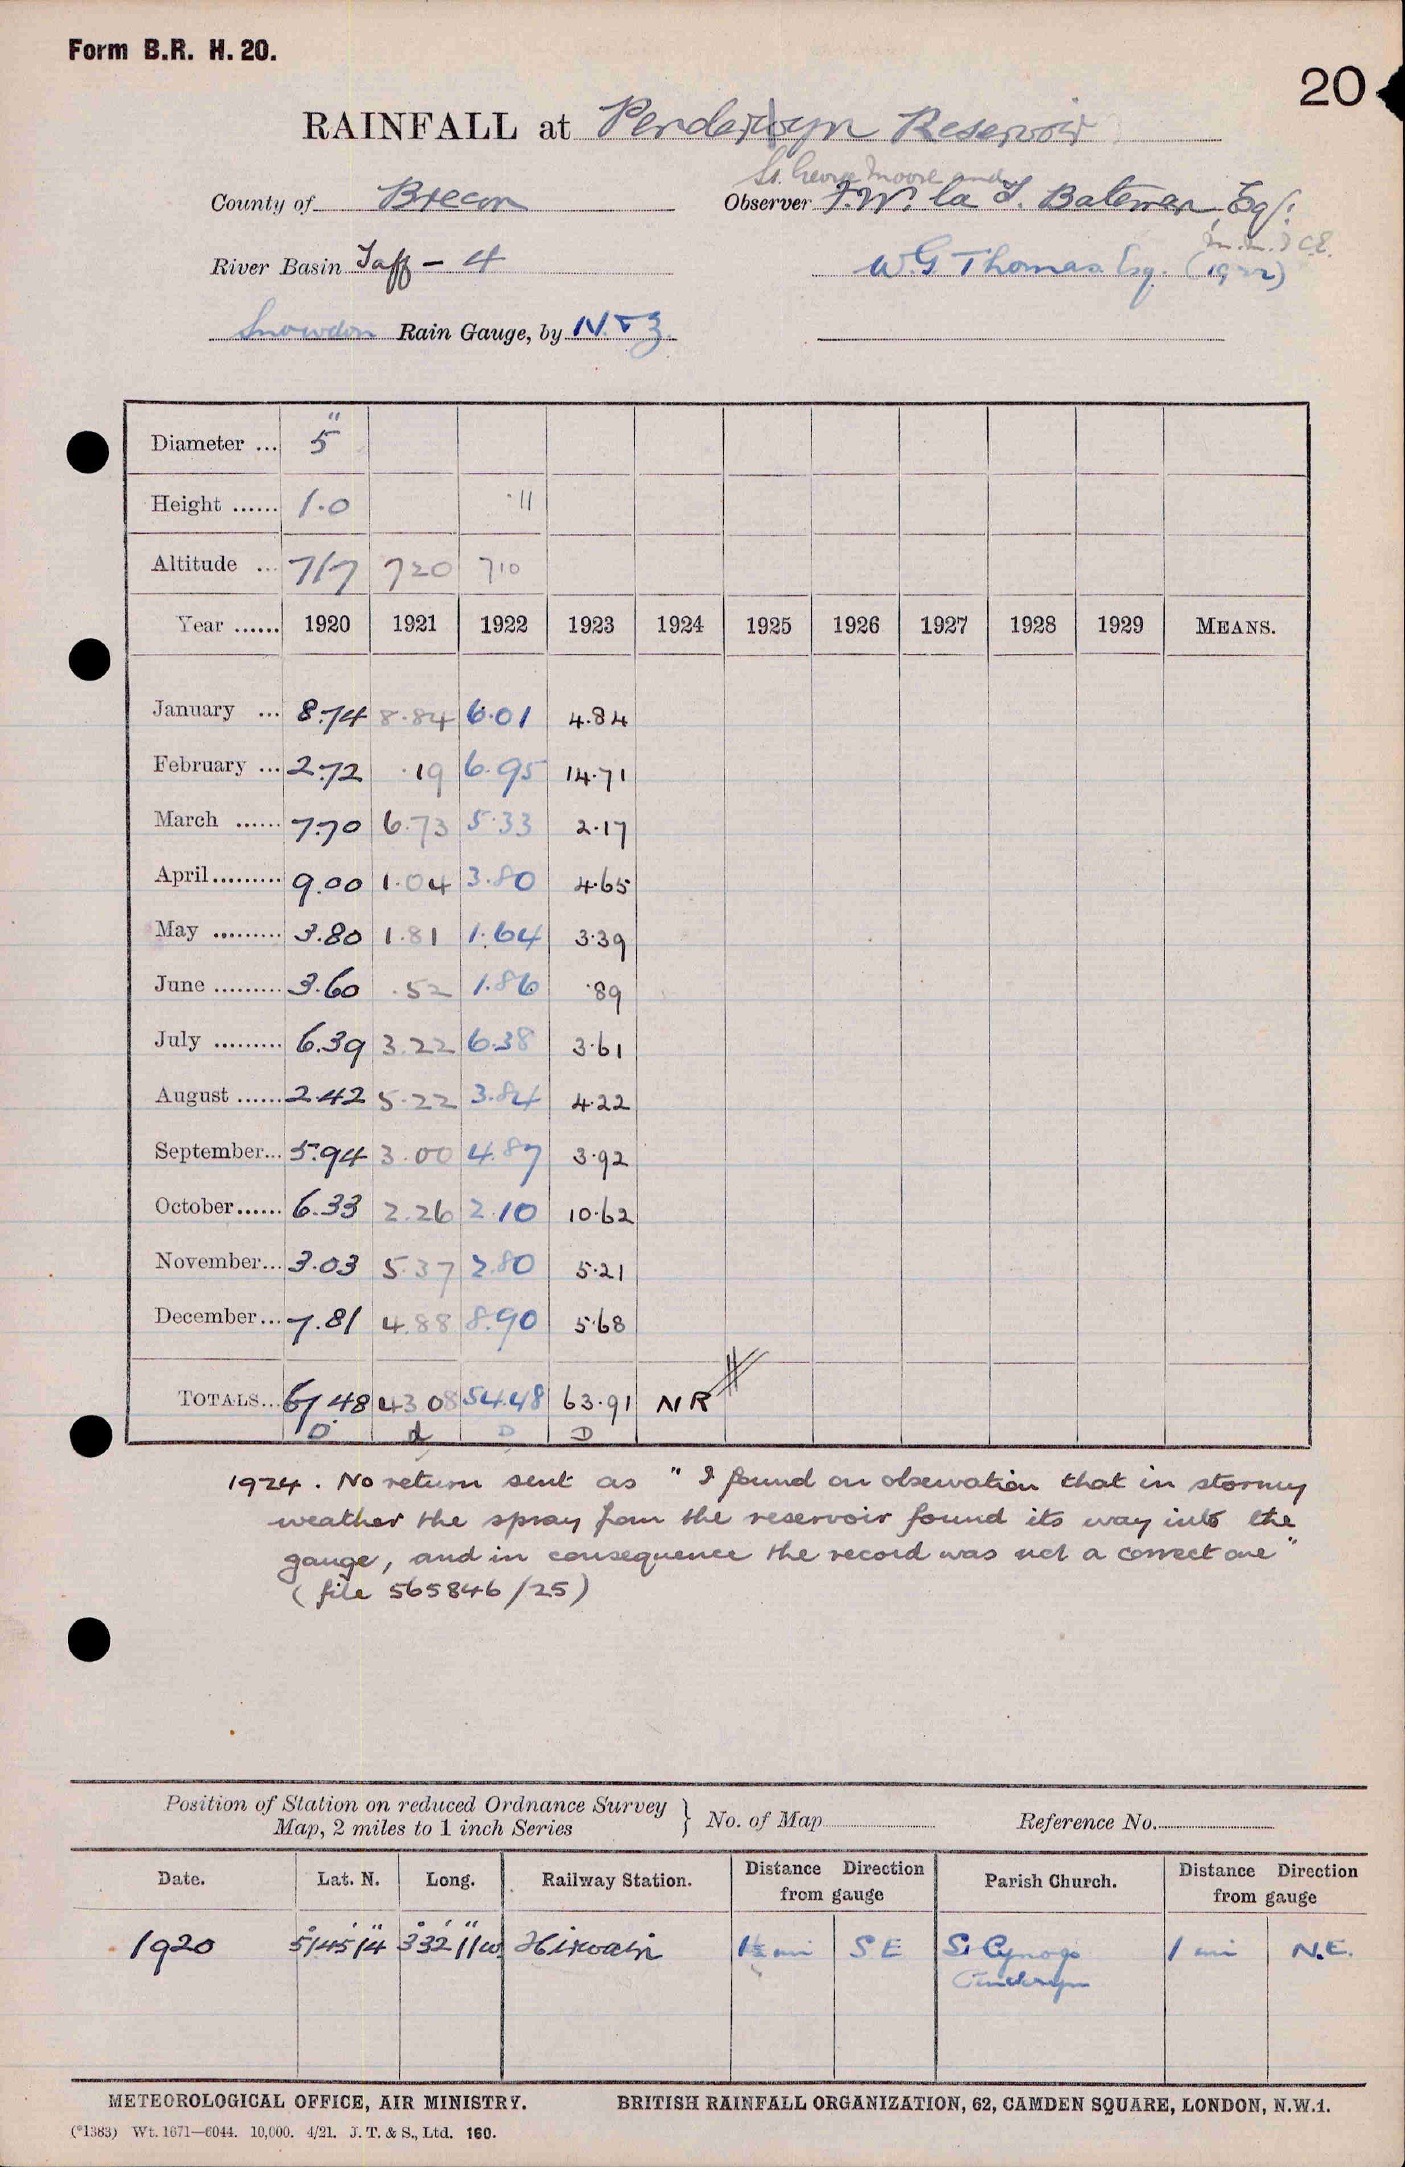 Form B.R. H. 20.
20
RAINFALL at Penderyn Reservoir
St. George Moore and
County of Brecon Observer F.W. la T. Bateman, Esq:
M.M.I C.E.
River Basin Taff - 4 W.G Thomas. Esq. (1922)
Snowdon Rain Gauge, by N. & Z.
Diameter ... 5"
Height ...... 1.0 .11
Altitude ... 717 720 710
Year ...... 1920 1921 1922 1923 1924 1925 1926 1927 1928 1929 MEANS.
January ... 8.74 8.84 6.01 4.84
February ... 2.72 .19 6.95 14.71
March ...... 7.70 6.73 5.33 2.17
April......... 9.00 1.04 3.80 4.65
May ......... 3.80 1.81 1.64 3.39
June ......... 3.60 .52 1.86 .89
July ......... 6.39 3.22 6.38 3.61
August ...... 2.42 5.22 3.84 4.22
September... 5.94 3.00 4.87 3.92
October...... 6.33 2.26 2.10 10.62
November... 3.03 5.37 2.80 5.21
December... 7.81 4.88 8.90 5.68
TOTALS... 67 48 43 08 54.48 63.91 NR
D d D D
1924. No return sent as "I found on observation that in stormy
weather the spray from the reservoir found its way into the
gauge, and in consequence the record was not a correct one"
(file 565846/25)
Position of Station on reduced Ordnance Survey
Map, 2 miles to 1 inch Series } No. of Map Reference No.
Date. Lat. N. Long. Railway Station. Distance Direction from gauge Parish Church. Distance Direction from gauge
1920 51°45'14" 3°32'11"W Hirwain 1½ mi S E St Cynogs 1 mi N.E.
Penderyn
METEOROLOGICAL OFFICE, AIR MINISTRY. BRITISH RAINFALL ORGANIZATION, 62, CAMDEN SQUARE, LONDON, N.W.1.
(*1383) Wt. 1671—6044. 10,000. 4/21. J. T. & S., Ltd. 160.